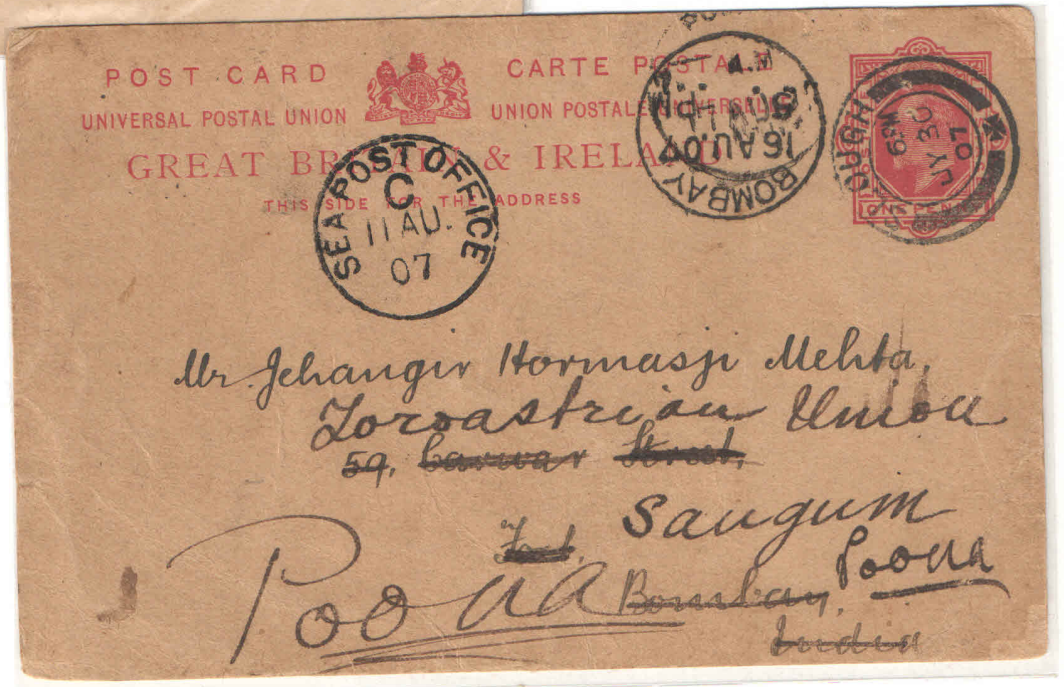 POST CARD
CARTE POSTALE
UNIVERSAL POSTAL UNION
UNION POSTALE UNIVERSELLE
GREAT BRITAIN & IRELAND
THIS SIDE FOR THE ADDRESS
ONE PENNY
SEA POST OFFICE
C
11 AU.
07
BOMBAY
16 AU.07
JY 30
07
Mr. Jehangir Hormasji Mehta,
Zoroastrian Union
59, Carwar Street,
Fort.
Sangum
Poona
Bombay.
Poona
India